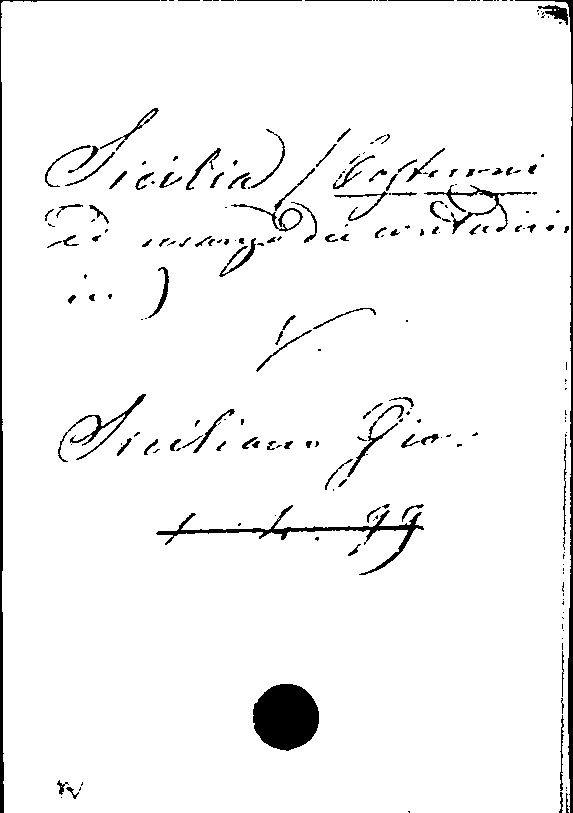 Sicilia (Costumi
ed usanze dei contadini
in)
V.
Siciliano Gio.
1. L. 99